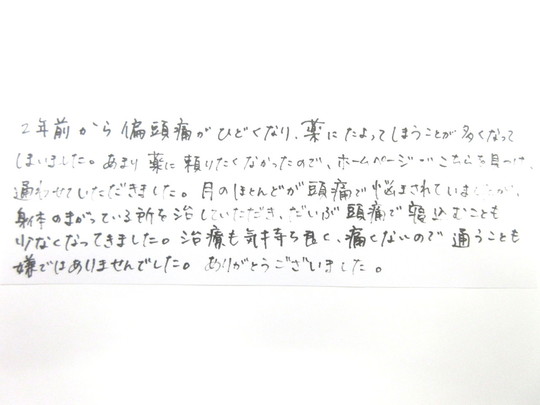 2年前から偏頭痛がひどくなり、薬にたよってしまうことが多くなって
しまいました。あまり薬に頼りたくなかったので、ホームページでこちらを見つけ、
通わせていただきました。月のほとんどが頭痛で悩まされていましたが、
身体のまがっている所を治していただき、だいぶ頭痛で寝込むことも
少なくなってきました。治療も気持ち良く、痛くないので通うことも
嫌ではありませんでした。ありがとうございました。